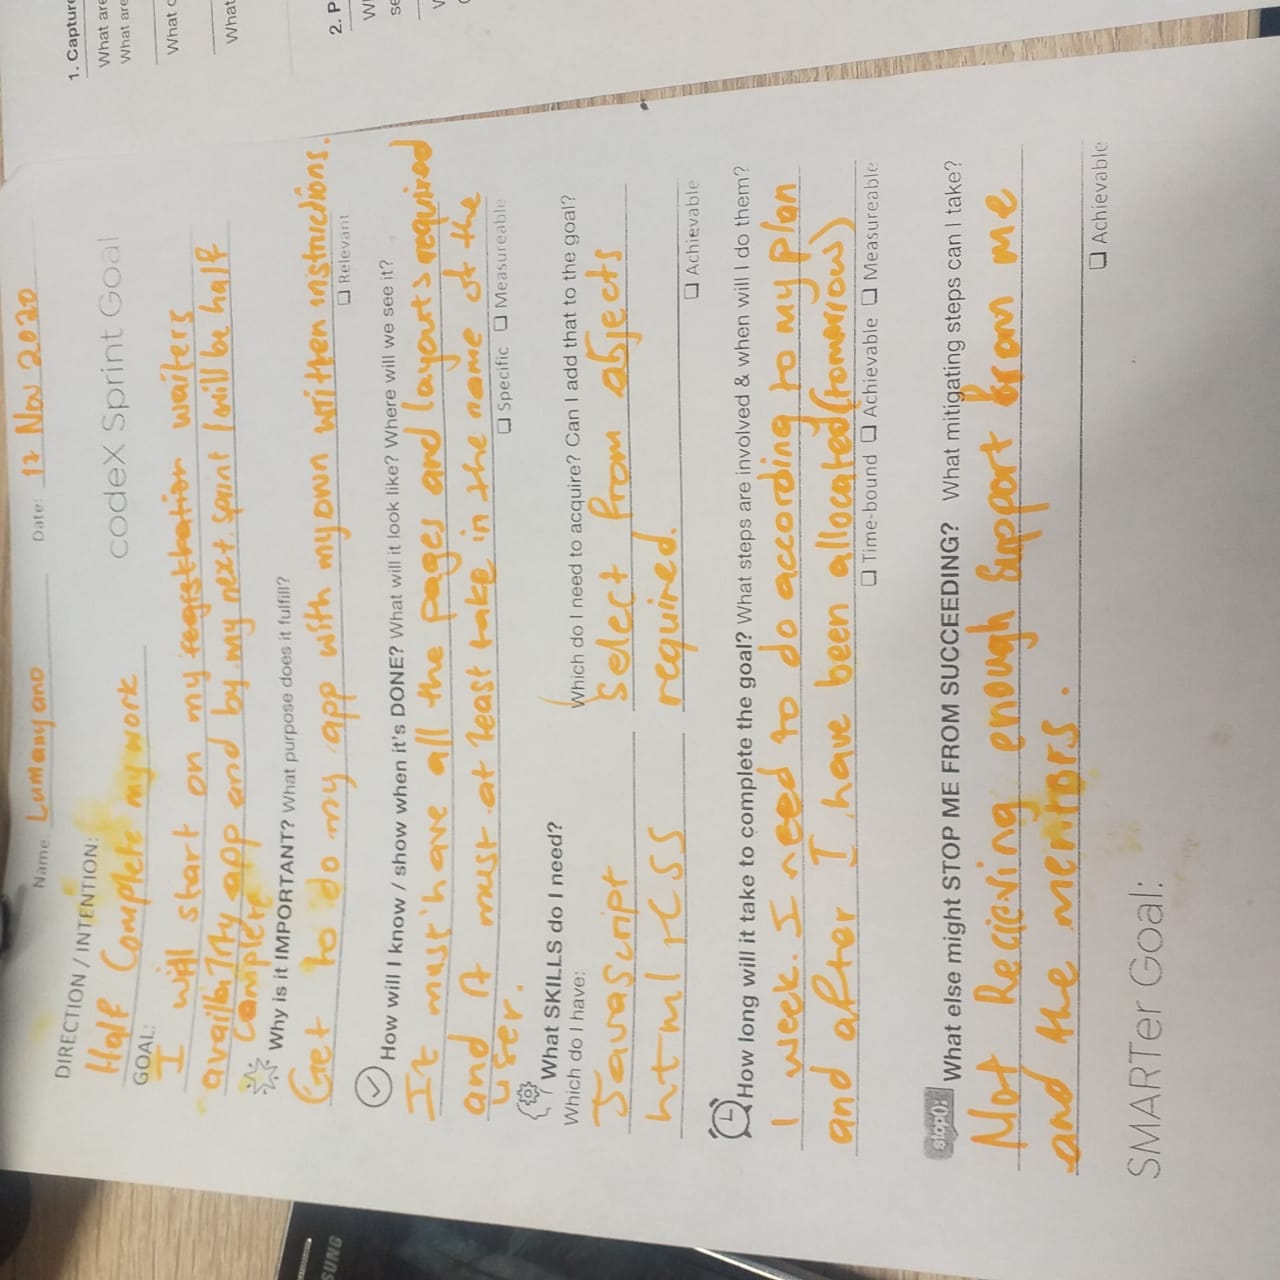 1. Capture
What are
What are
What c
What
2. P
Wh
se
Name: Lumanyano Date: 17 Nov 2020
DIRECTION / INTENTION:
Half Complete my work
codeX Sprint Goal
GOAL:
I will start on my registration waiters
availbility app and by my next sprint I will be half
complete
Why is it IMPORTANT? What purpose does it fulfill?
Get to do my app with my own written instructions.
❑ Relevant
How will I know / show when it's DONE? What will it look like? Where will we see it?
It must have all the pages and layouts required
and it must at least take in the name of the
user.
❑ Specific ❑ Measureable
What SKILLS do I need?
Which do I have:
Which do I need to acquire? Can I add that to the goal?
Javascript
select from objects
html + CSS
required.
❑ Achievable
How long will it take to complete the goal? What steps are involved & when will I do them?
1 week. I need to do according to my plan
and after I have been allocated (tomorrow)
❑ Time-bound ❑ Achievable ❑ Measureable
stop(): What else might STOP ME FROM SUCCEEDING? What mitigating steps can I take?
Not Recieving enough Support from me
and the mentors.
❑ Achievable
SMARTer Goal:
SUNG